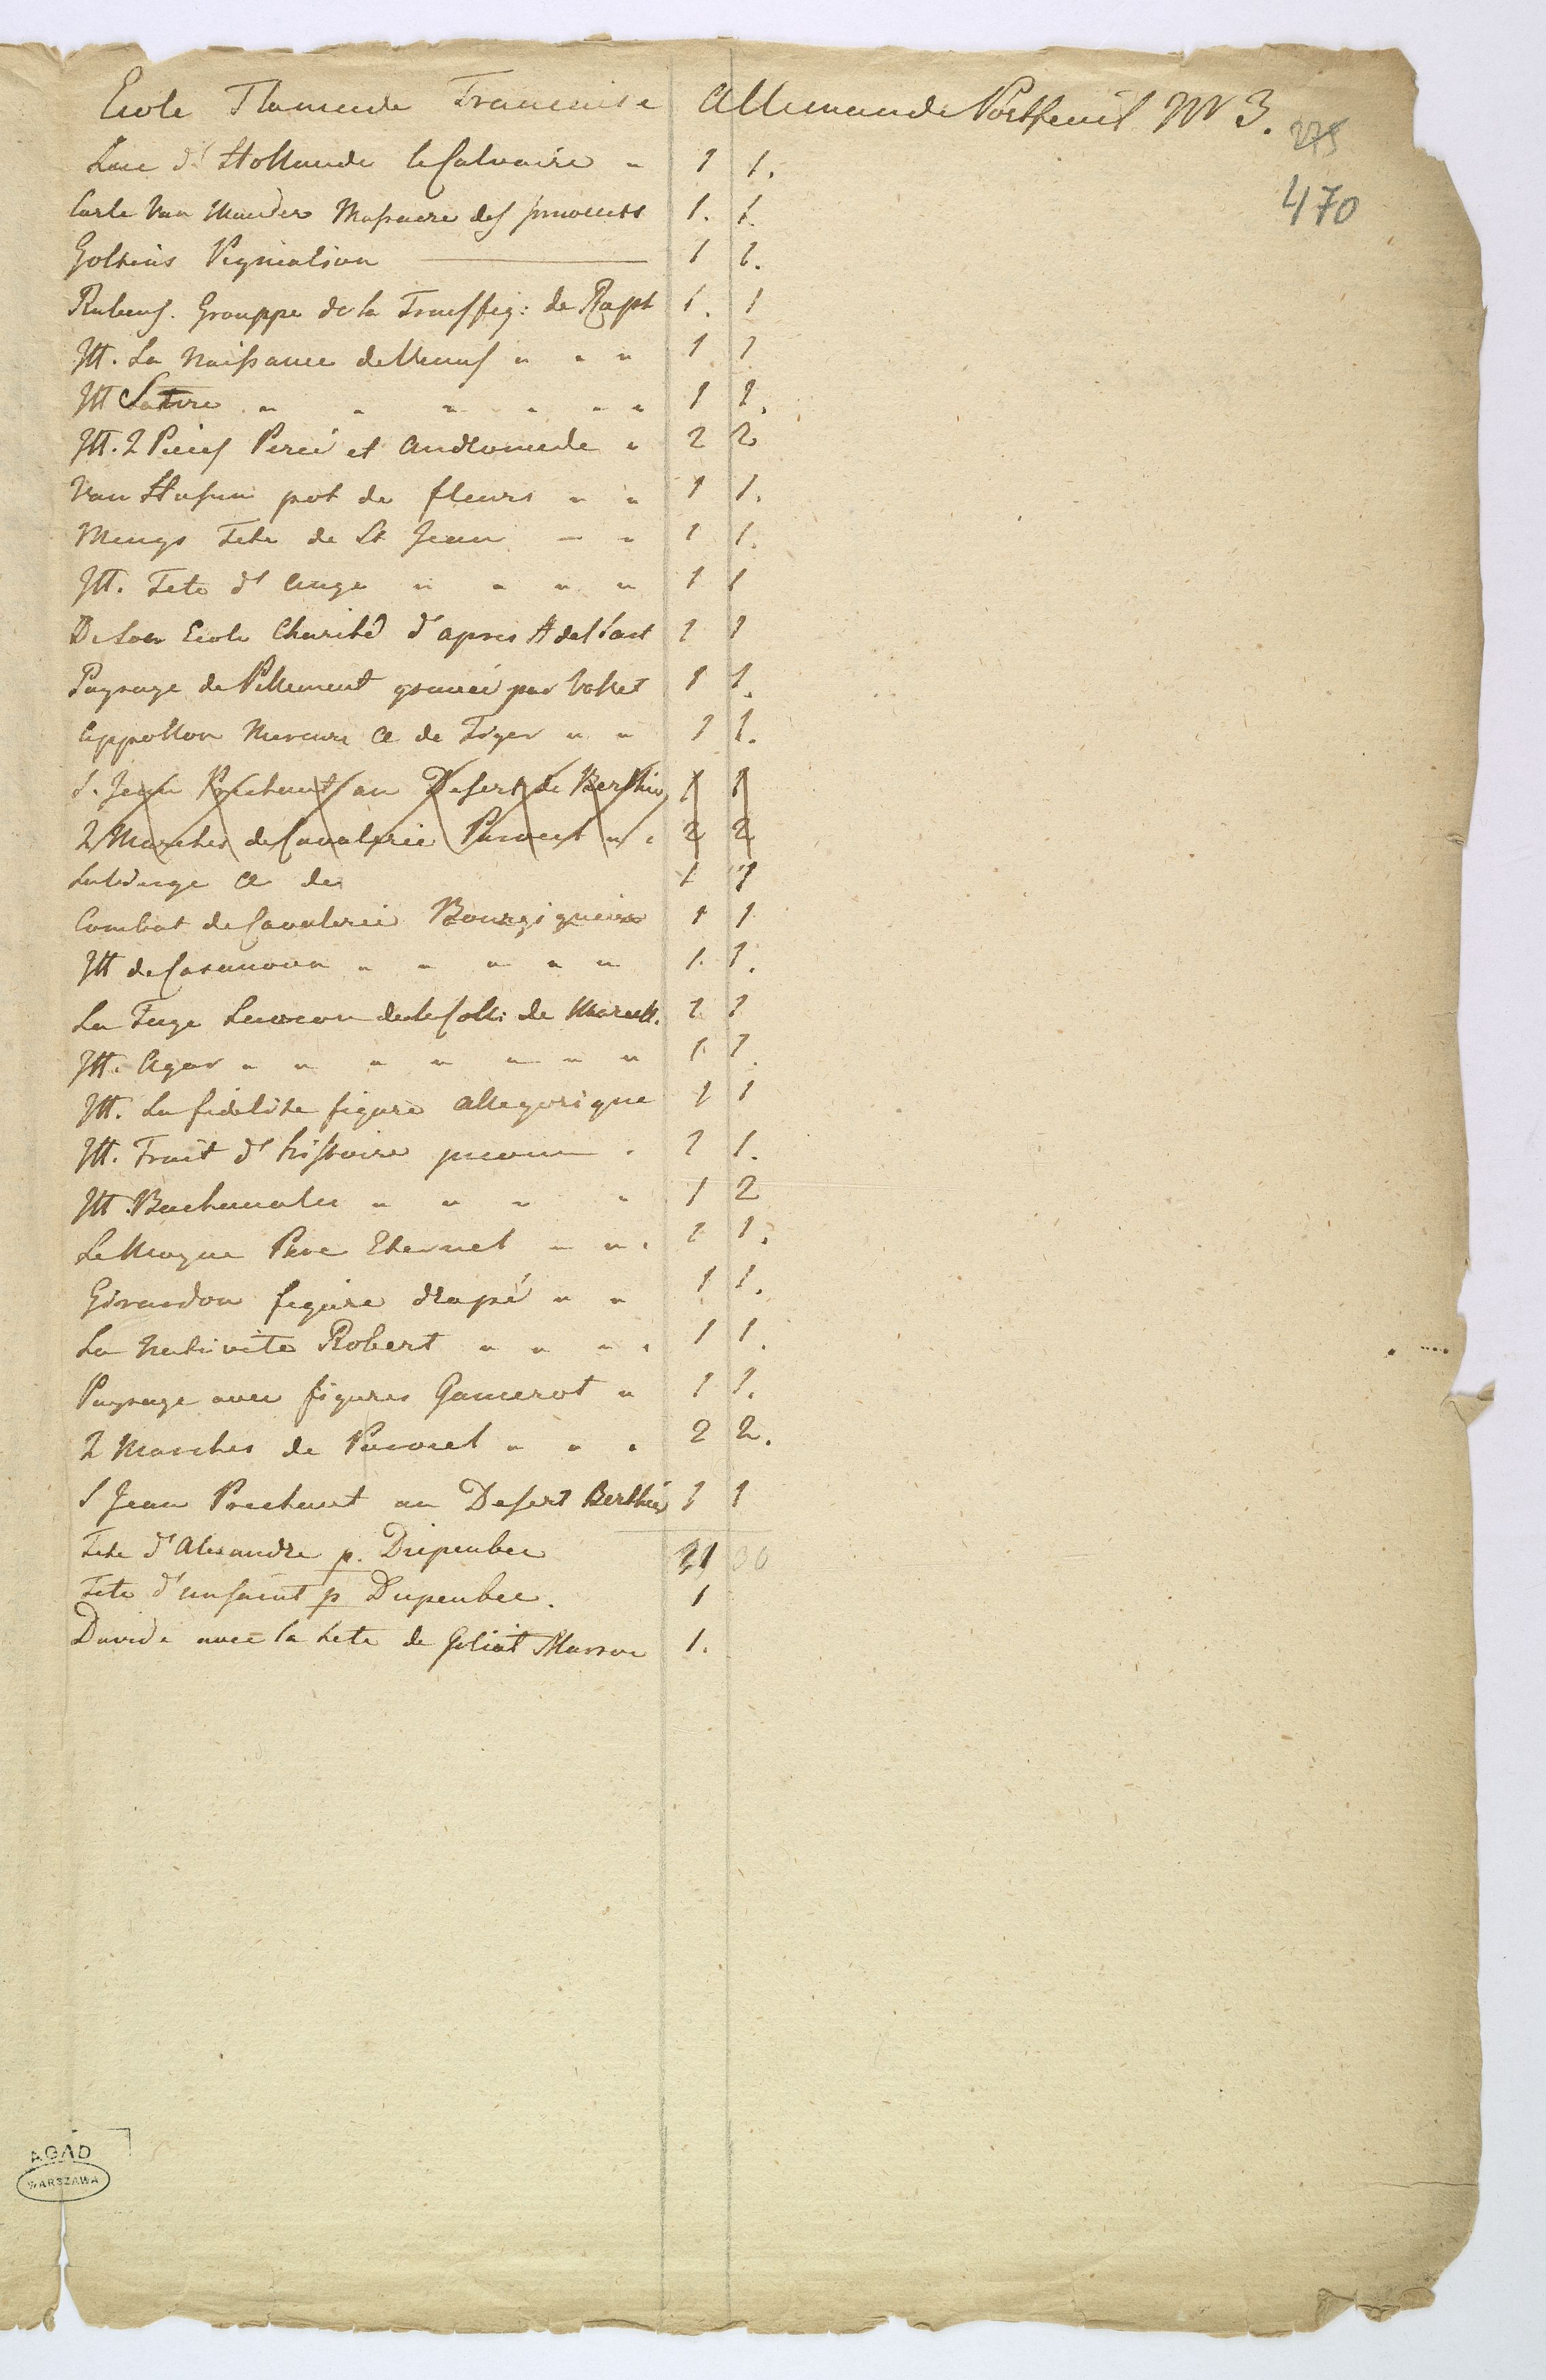 Ecole Flamende Francaise Allemande Portfeuil Nr 3.
275
470
Luc d'Hollande le Calvaire " 1 1.
Carle Van Mander Massacre des Innocents 1. 1.
Goltzius Pigmalion 1 1.
Rubens. Grouppe de la Transfig: de Raph 1. 1
Itt. La Naissance de Venus " " " 1 1
Itt Satire " " " " " " 1 1.
Itt. 2 Pieces Persé et Andromede " 2 2
Van Husum pot de fleurs " " 1 1.
Mengs Tete de St Jean " " 1 1.
Itt. Tete d'Ange " " " " 1 1
De son Ecole Charité d'apres A del Sart 1 1
Paysage de Pillement gravé par Vollet 1 1.
Appollon Mercure A de Figer " " 1 1.
S. Jean Prechant au Desert de Berthie 1 1
2 Marches de Cavalerie Parocel " " 2 2
A de 1 1
Combat de Cavalerie Bourgignion 1 1
Itt de Casanova " " " " " 1. 1.
La Fage Laocoon de la Coll: de Mariett. 1 1
Itt. Agar " " " " " " " 1 1.
Itt. La fidelite figure allegorique 1 1
Itt. Trait d'histoire jnconu " 1 1.
Itt. Bachanales " " " " 1 2
Le Moyne Pere Eternel " " " 1 1.
Girardon figure drapé " " 1 1.
La Nativite Robert " " " " 1 1.
Paysage avec figures Gamerot " 1 1.
2 Marches de Parocel " " " 2 2.
S Jean Prechant au Desert Berthie 1 1
Tete d'Alexandre p. Diepenbec 31 00
Tete d'un saint p Diepenbec. 1
David avec la tete de Goliat 1.
AGAD
WARSZAWA